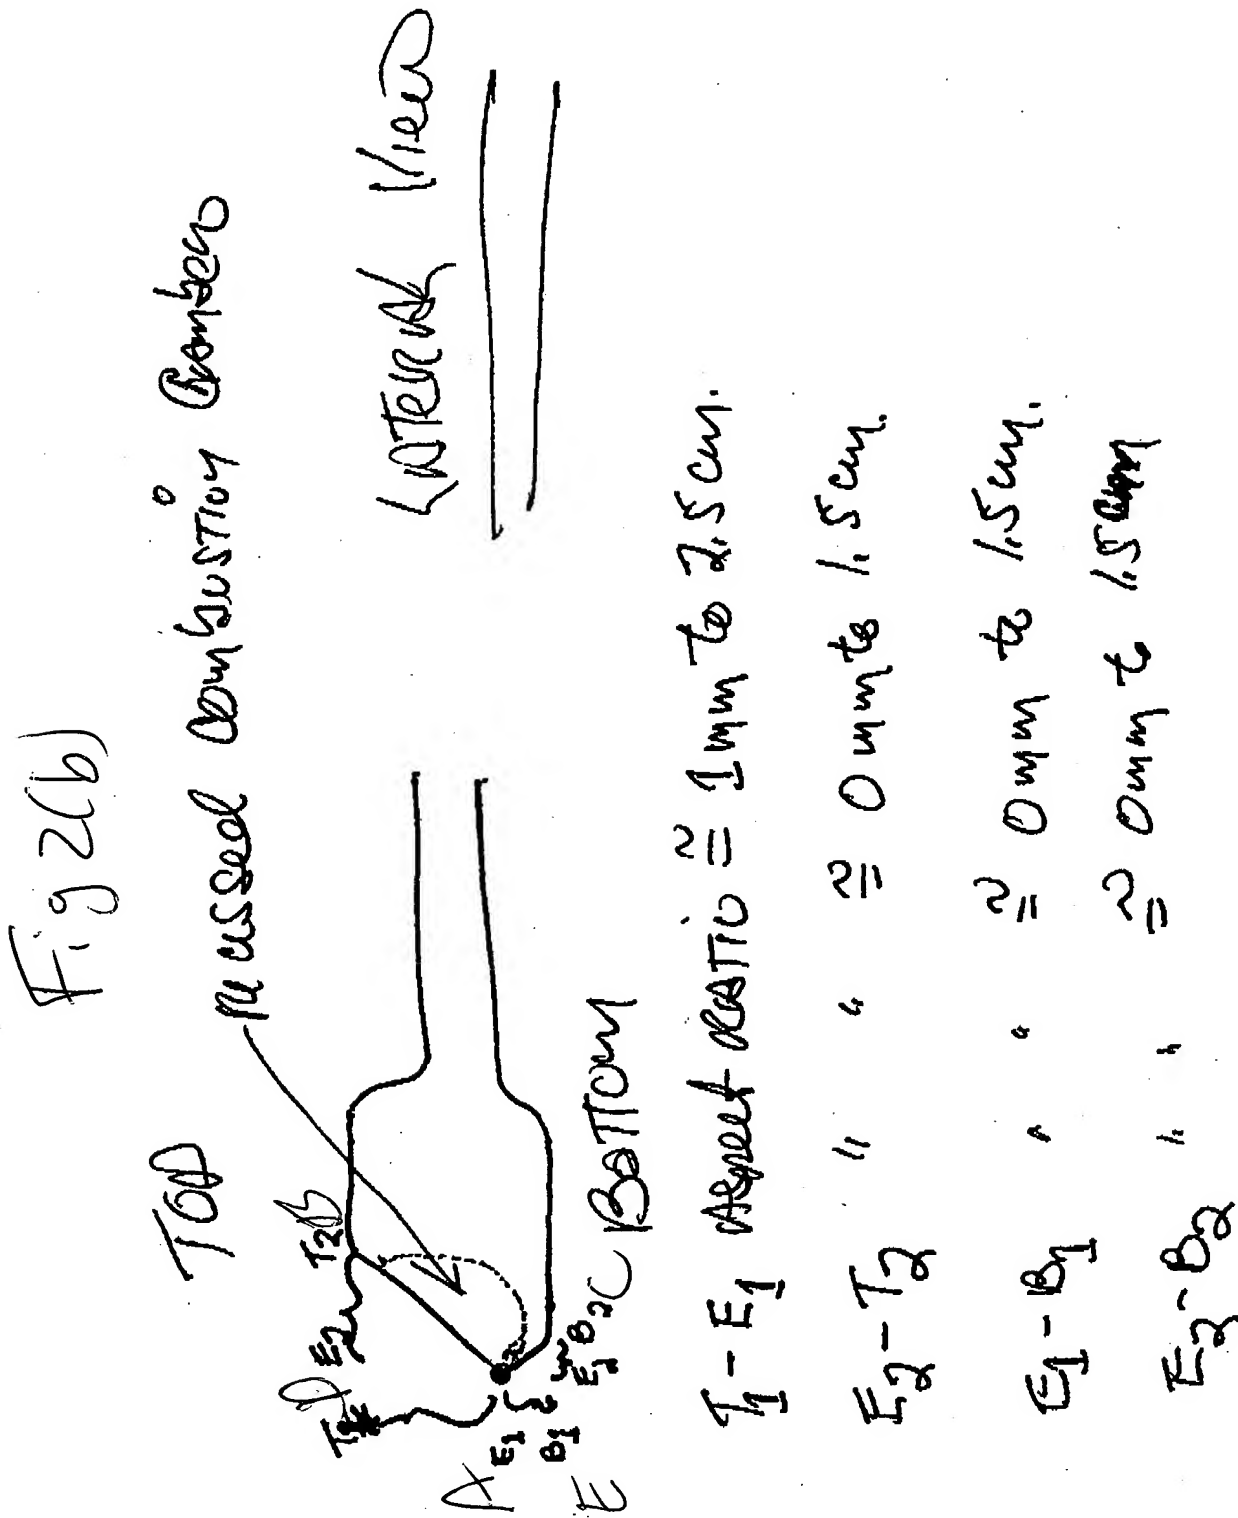 Fig 2(b)
TOP
recussed combustion chamber
LATERAL View
T2 B
E2
D
T1
A
E1
B1
E
E2 B2 C
BOTTOM
T1 - E1 Aspect RATIO ≅ 1 mm to 2.5 cm.
E2 - T2 " " ≅ 0 mm to 1.5 cm.
E1 - B1 " " ≅ 0 mm to 1.5 cm.
E2 - B2 " " ≅ 0 mm to 1.5 cm